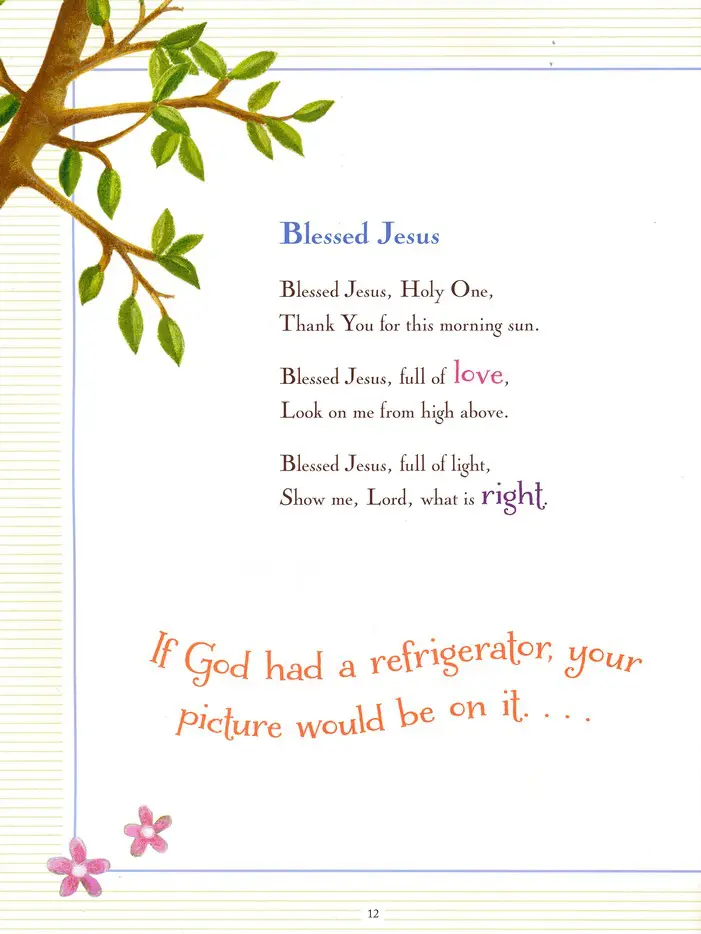 Blessed Jesus
Blessed Jesus, Holy One,
Thank You for this morning sun.
Blessed Jesus, full of love,
Look on me from high above.
Blessed Jesus, full of light,
Show me, Lord, what is right.
If God had a refrigerator, your
picture would be on it. . . .
12